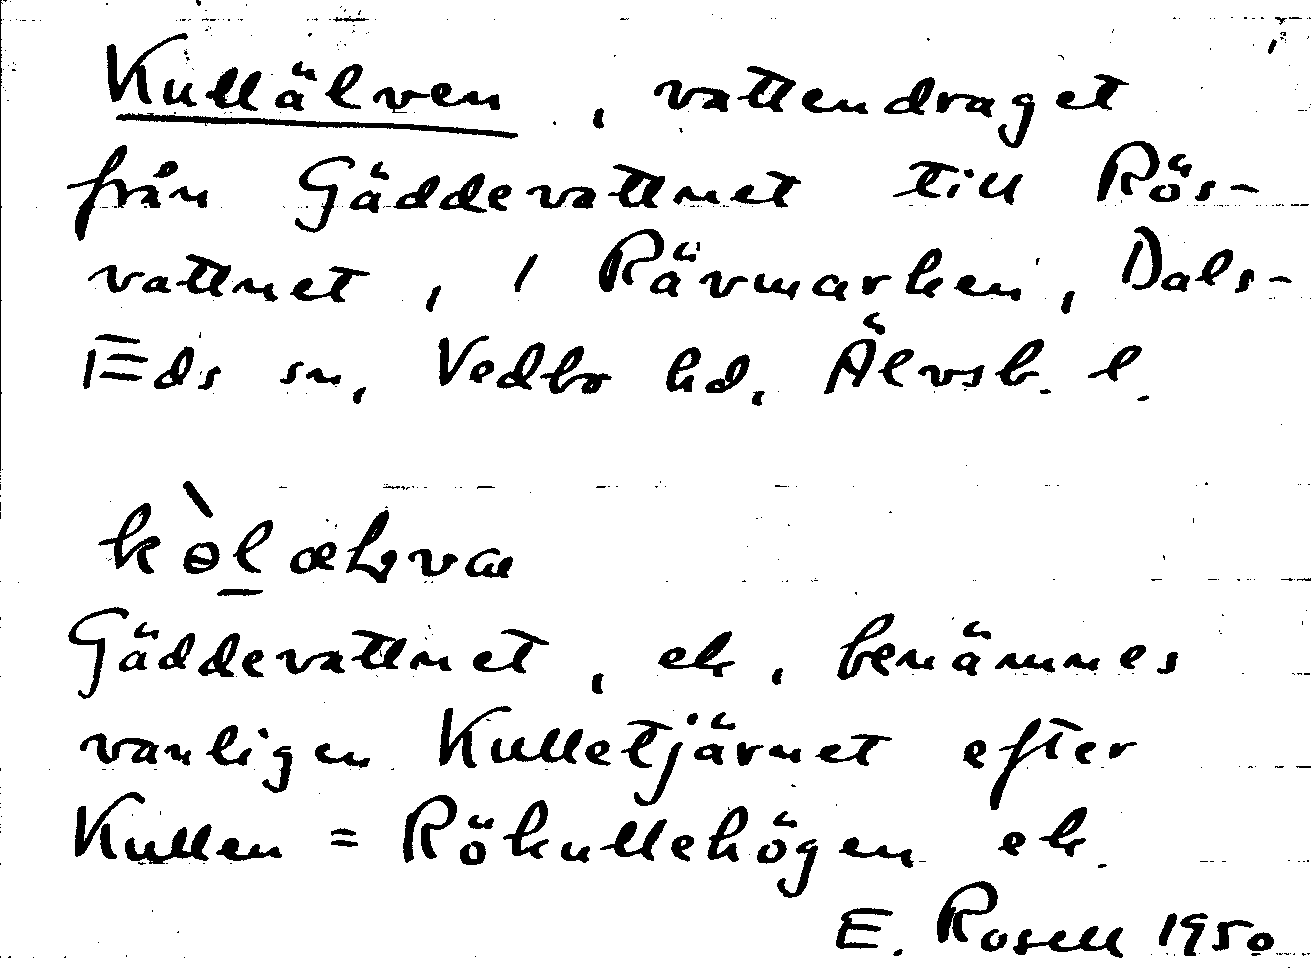 Kullälven, vattendraget
från Gäddevattnet till Rös-
vattnet, i Rävmarken, Dals-
Eds sn, Vedbo hd, Älvsb. l.
Gäddevattnet, ek, benämnes
vanligen Kulletjärnet efter
Kullen = Rökullehögen ek.
E. Rosell 1950